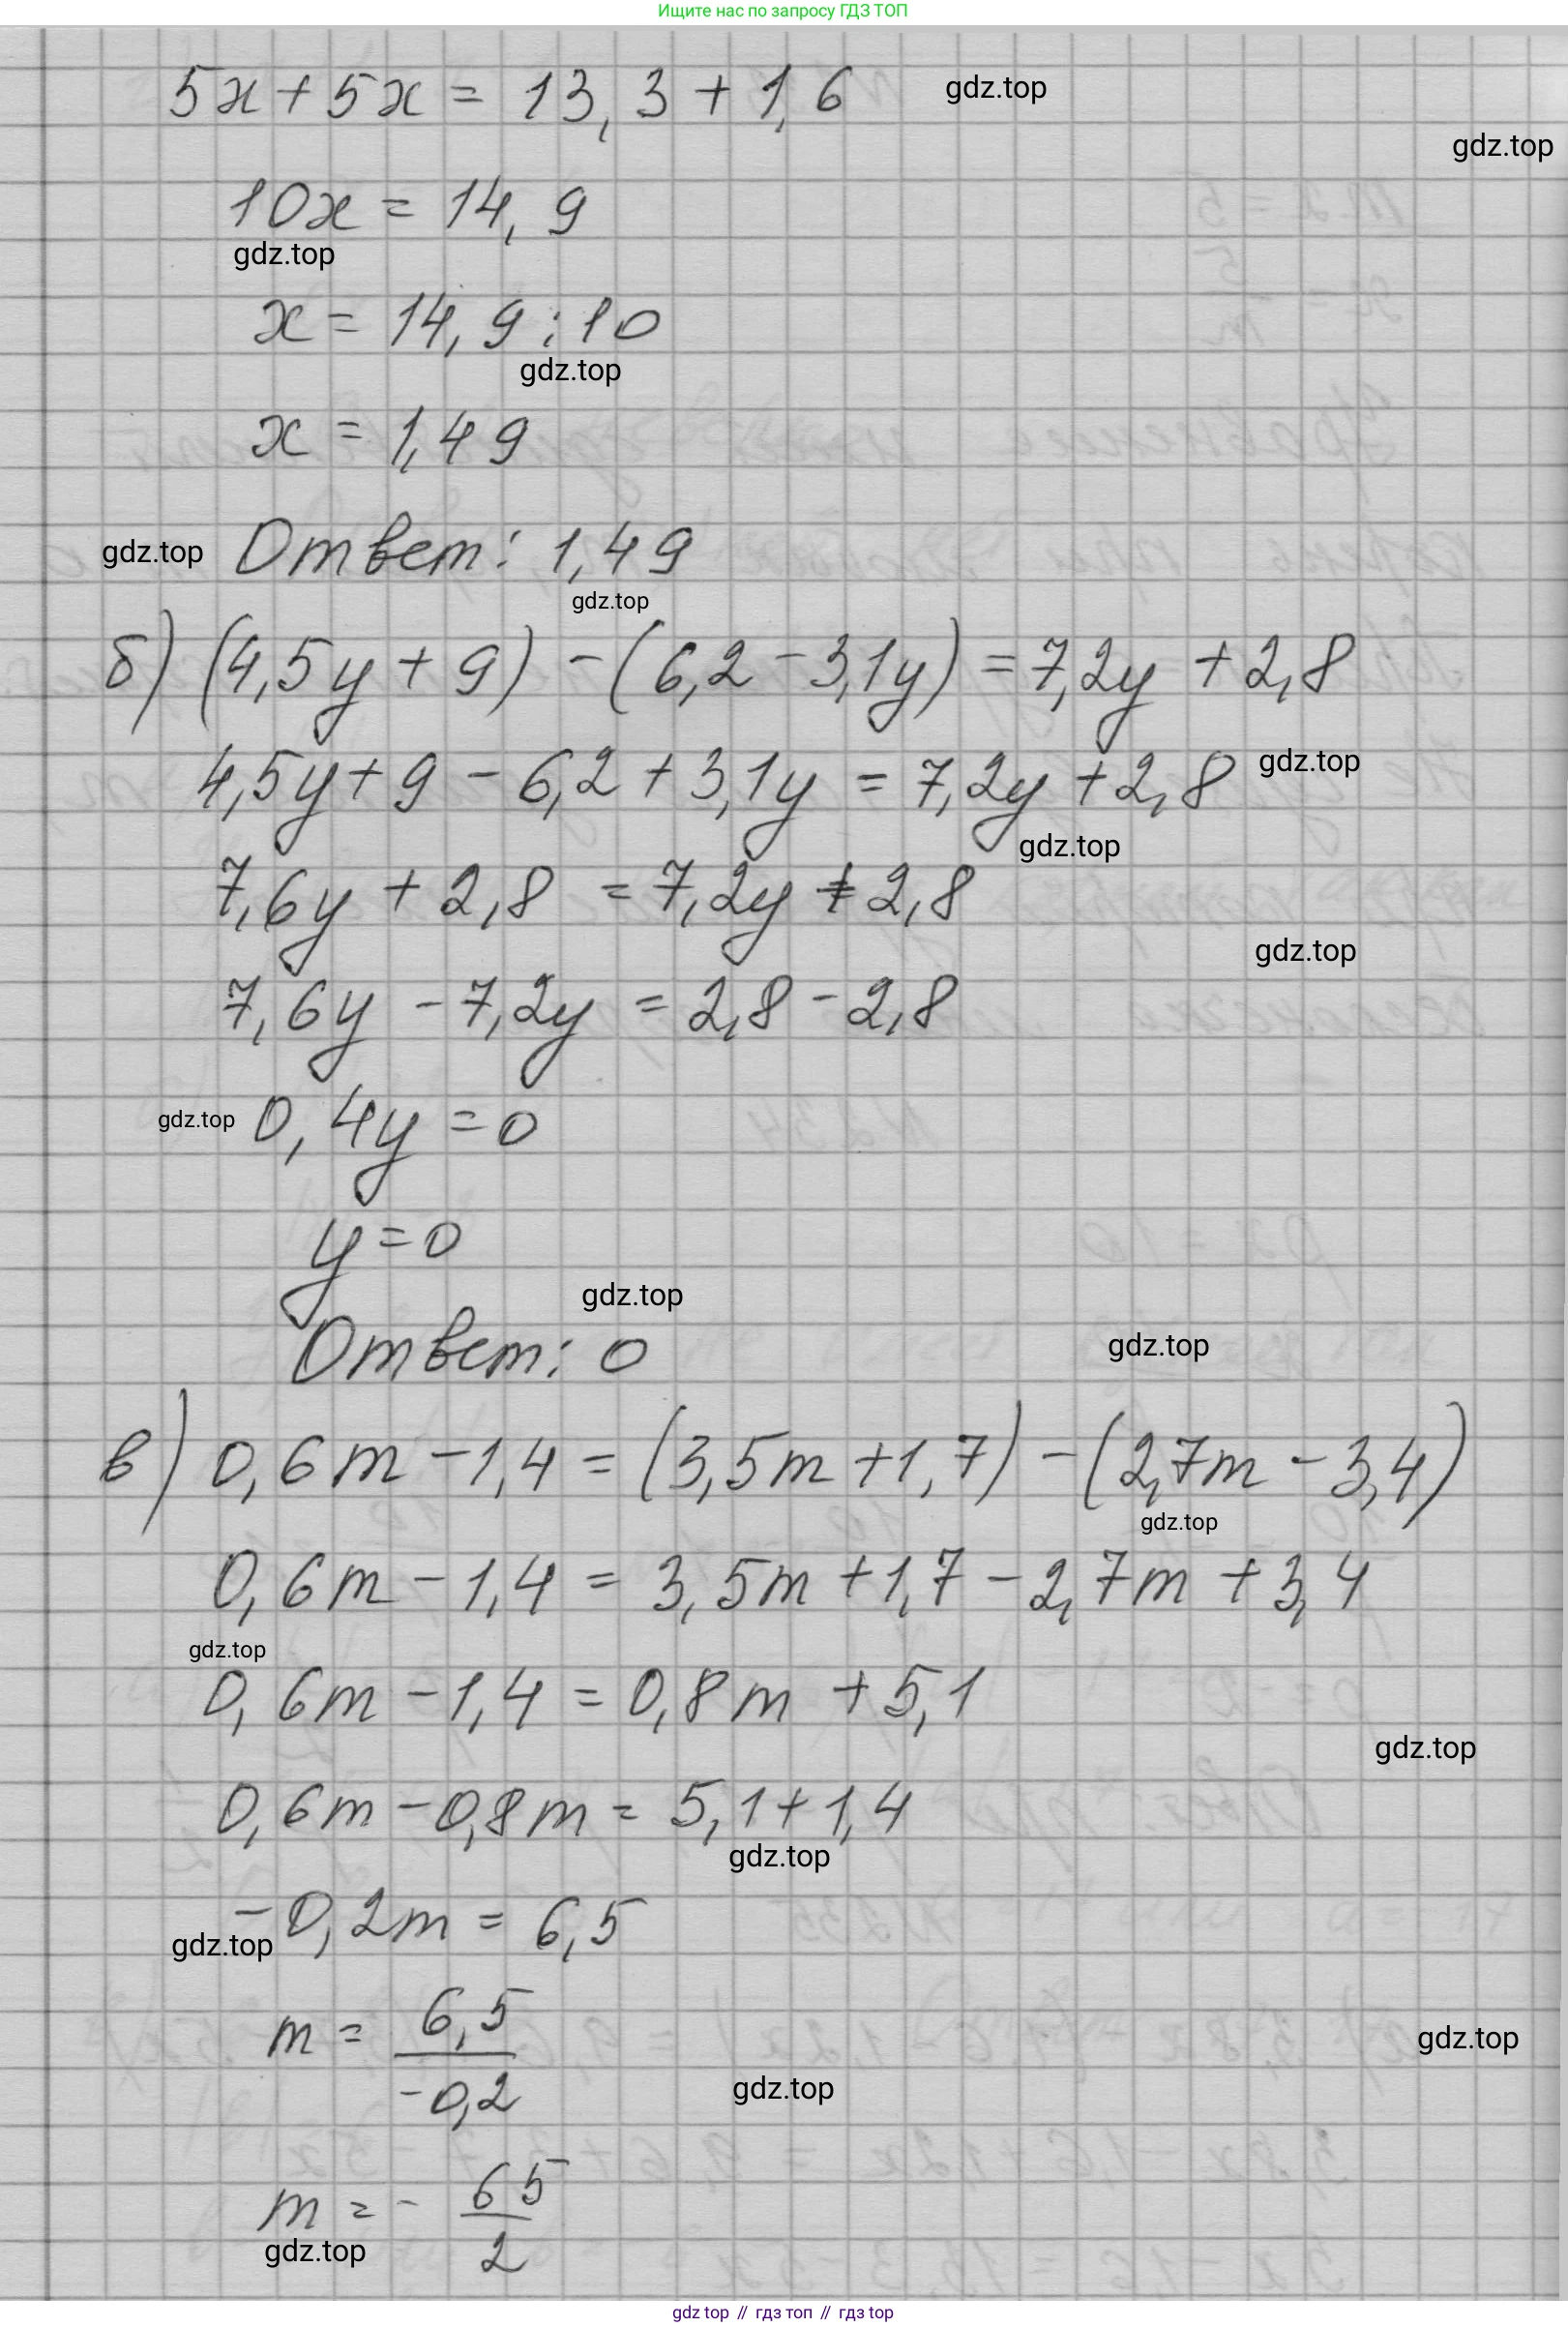 Ищите нас по запросу ГДЗ ТОП
5x + 5x = 13,3 + 1,6 gdz.top
gdz.top
10x = 14,9
gdz.top
x = 14,9 : 10
gdz.top
x = 1,49
gdz.top Ответ: 1,49
gdz.top
б) (4,5y + 9) - (6,2 - 3,1y) = 7,2y + 2,8
4,5y + 9 - 6,2 + 3,1y = 7,2y + 2,8 gdz.top
gdz.top
7,6y + 2,8 = 7,2y + 2,8
gdz.top
7,6y - 7,2y = 2,8 - 2,8
gdz.top 0,4y = 0
y = 0
gdz.top
Ответ: 0 gdz.top
в) 0,6m - 1,4 = (3,5m + 1,7) - (2,7m - 3,4)
gdz.top
0,6m - 1,4 = 3,5m + 1,7 - 2,7m + 3,4
gdz.top
0,6m - 1,4 = 0,8m + 5,1
gdz.top
0,6m - 0,8m = 5,1 + 1,4
gdz.top
-0,2m = 6,5
gdz.top
m = 6,5 / -0,2
gdz.top
gdz.top
m = - 65 / 2
gdz.top
gdz top // гдз топ // гдз top